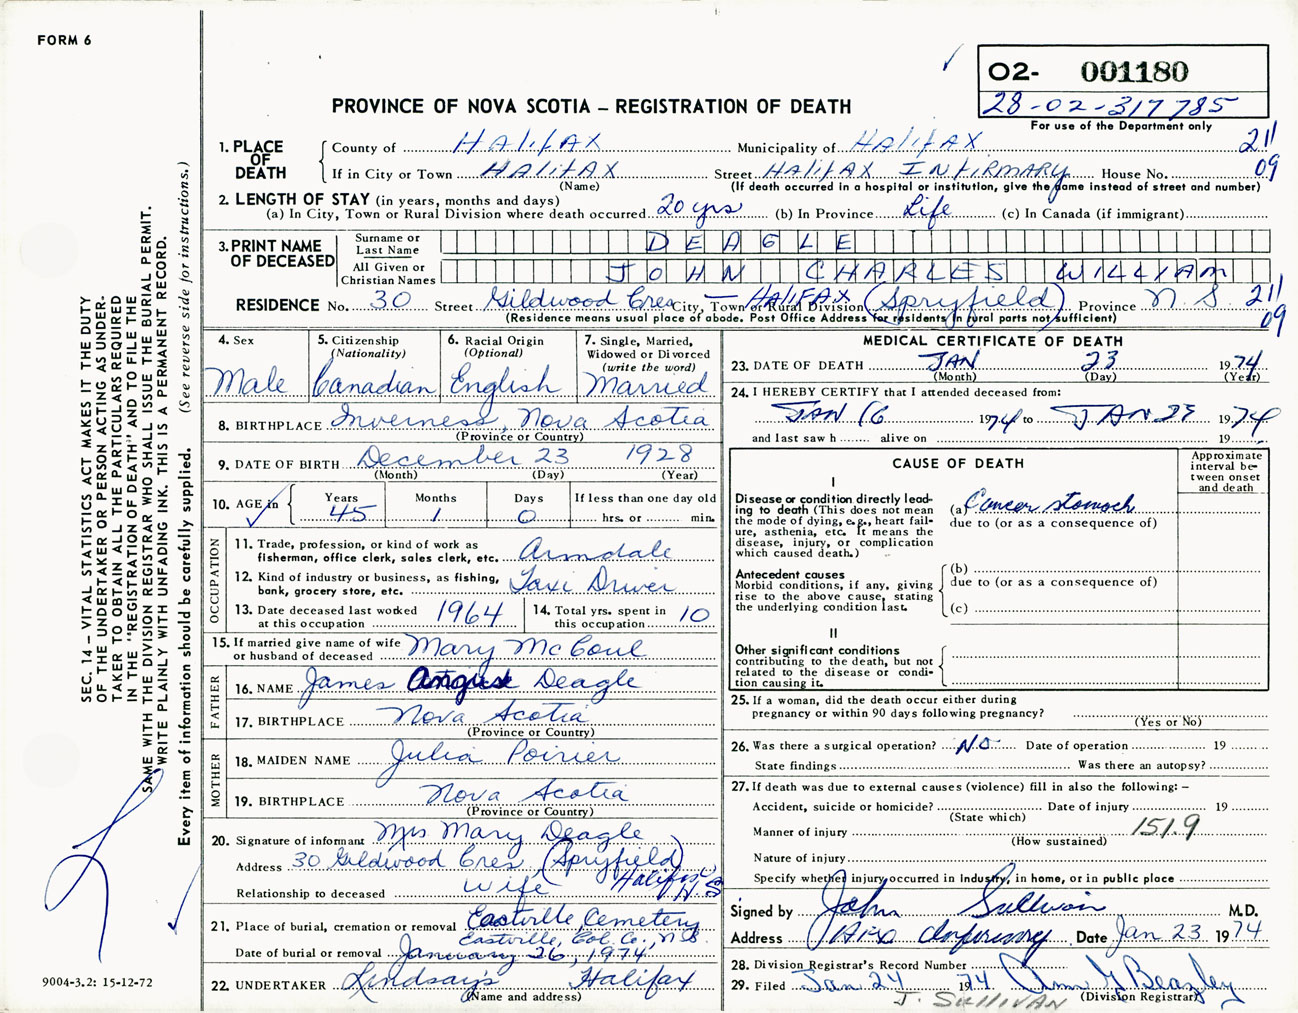 FORM 6
O2- 001180
28-02-317785
For use of the Department only
PROVINCE OF NOVA SCOTIA – REGISTRATION OF DEATH
1. PLACE OF DEATH
County of HALIFAX Municipality of HALIFAX 211
If in City or Town HALIFAX Street HALIFAX INFIRMARY House No. 09
(Name) (If death occurred in a hospital or institution, give the name instead of street and number)
2. LENGTH OF STAY (in years, months and days)
(a) In City, Town or Rural Division where death occurred 20 yrs (b) In Province Life (c) In Canada (if immigrant)
3. PRINT NAME OF DECEASED
Surname or Last Name DEAGLE
All Given or Christian Names JOHN CHARLES WILLIAM
RESIDENCE No. 30 Street Gildwood Cres City, Town or Rural Division HALIFAX (Spryfield) Province N.S. 211
09
(Residence means usual place of abode. Post Office Address for residents in rural parts not sufficient)
4. Sex
Male
5. Citizenship (Nationality)
Canadian
6. Racial Origin (Optional)
English
7. Single, Married, Widowed or Divorced (write the word)
Married
8. BIRTHPLACE Inverness, Nova Scotia
(Province or Country)
9. DATE OF BIRTH December 23 1928
(Month) (Day) (Year)
10. AGE in
Years Months Days If less than one day old
45 1 0 hrs. or min.
OCCUPATION
11. Trade, profession, or kind of work as fisherman, office clerk, sales clerk, etc. Armdale
12. Kind of industry or business, as fishing, bank, grocery store, etc. Taxi Driver
13. Date deceased last worked at this occupation 1964
14. Total yrs. spent in this occupation 10
15. If married give name of wife or husband of deceased Mary McCoul
FATHER
16. NAME James Angus Deagle
17. BIRTHPLACE Nova Scotia
(Province or Country)
MOTHER
18. MAIDEN NAME Julia Poirier
19. BIRTHPLACE Nova Scotia
(Province or Country)
20. Signature of informant Mrs Mary Deagle
Address 30 Gildwood Cres. (Spryfield)
Halifax N.S
Relationship to deceased wife
21. Place of burial, cremation or removal Eastville Cemetery
Eastville, Col. Co., N.S.
Date of burial or removal January 26, 1974
22. UNDERTAKER Lindsay's Halifax
(Name and address)
MEDICAL CERTIFICATE OF DEATH
23. DATE OF DEATH JAN 23 1974
(Month) (Day) (Year)
24. I HEREBY CERTIFY that I attended deceased from:
JAN 16 1974 to JAN 23 1974
and last saw h alive on 19
CAUSE OF DEATH
Approximate interval between onset and death
I
Disease or condition directly leading to death (This does not mean the mode of dying, e.g., heart failure, asthenia, etc. It means the disease, injury, or complication which caused death.)
(a) Cancer stomach
due to (or as a consequence of)
Antecedent causes
Morbid conditions, if any, giving rise to the above cause, stating the underlying condition last.
(b)
due to (or as a consequence of)
(c)
II
Other significant conditions
contributing to the death, but not related to the disease or condition causing it.
25. If a woman, did the death occur either during pregnancy or within 90 days following pregnancy?
(Yes or No)
26. Was there a surgical operation? NO Date of operation 19
State findings Was there an autopsy?
27. If death was due to external causes (violence) fill in also the following: –
Accident, suicide or homicide? Date of injury 19
(State which)
Manner of injury 151.9
(How sustained)
Nature of injury
Specify whether injury occurred in Industry, in home, or in public place
Signed by John Sullivan M.D.
Address Infirmary Date Jan 23 1974
28. Division Registrar's Record Number
29. Filed Jan 24 1974 Beazley
(Division Registrar)
J. SULLIVAN
SEC. 14 – VITAL STATISTICS ACT MAKES IT THE DUTY
OF THE UNDERTAKER OR PERSON ACTING AS UNDER-
TAKER TO OBTAIN ALL THE PARTICULARS REQUIRED
IN THE "REGISTRATION OF DEATH" AND TO FILE THE
SAME WITH THE DIVISION REGISTRAR WHO SHALL ISSUE THE BURIAL PERMIT.
WRITE PLAINLY WITH UNFADING INK. THIS IS A PERMANENT RECORD.
Every item of information should be carefully supplied. (See reverse side for instructions.)
9004-3.2: 15-12-72